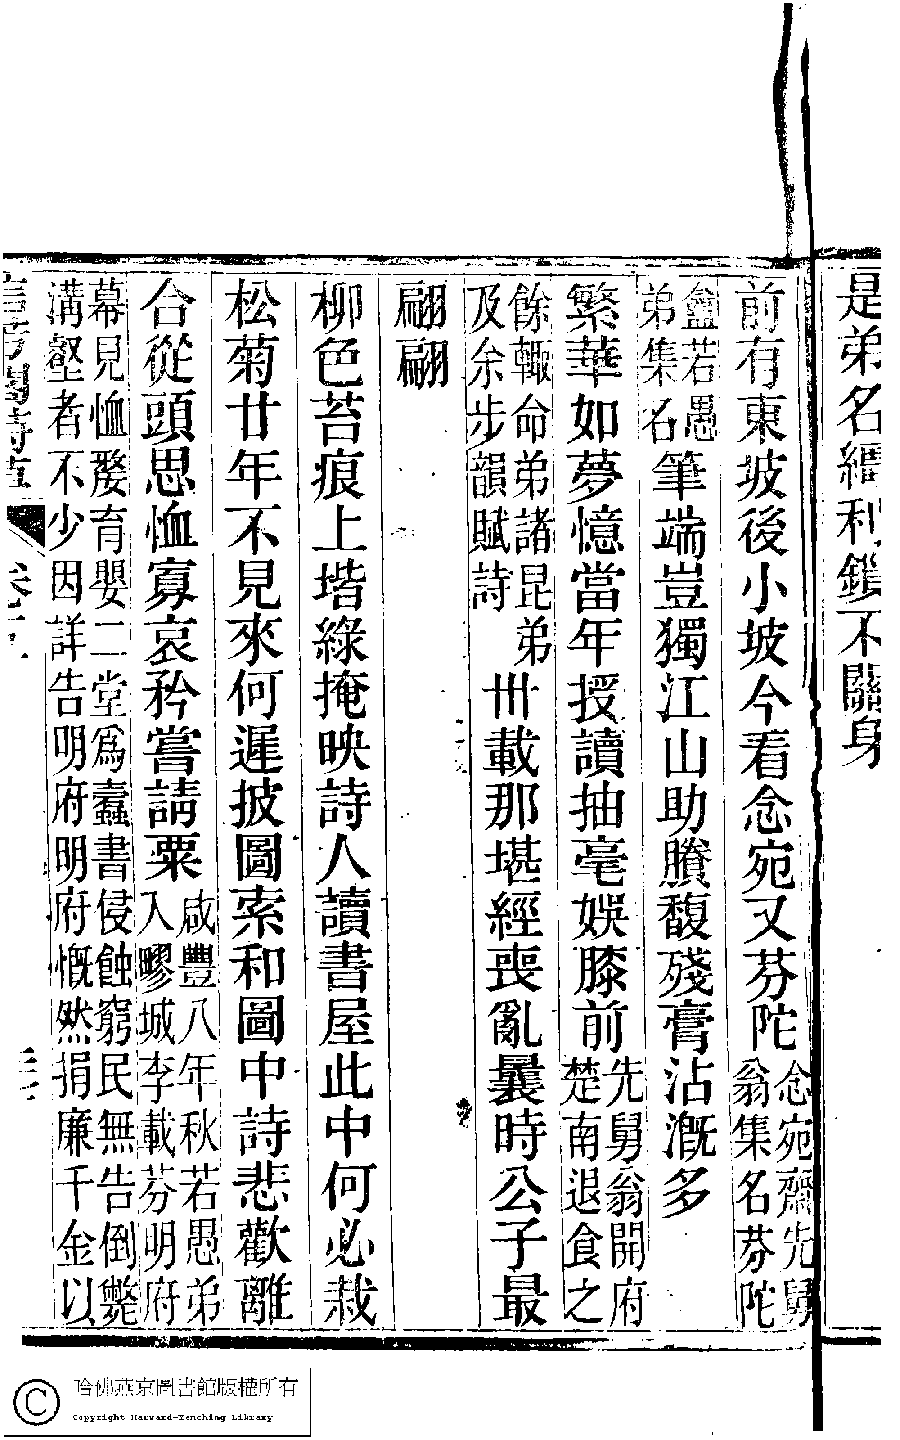 是弟名繮利鎖不關身
前有東坡後小坡今看念宛又芬陀念宛齋先舅
翁集名芬陀
盦若愚
弟集名筆端豈獨江山助賸馥殘膏沾漑多
繁華如夢憶當年授讀抽毫娛膝前先舅翁開府
楚南退食之
餘輙命弟諸昆弟
及余步韻賦詩卅載那堪經喪亂曩時公子最
翩翩
柳色苔痕上堦綠掩映詩人讀書屋此中何必栽
松菊廿年不見來何遲披圖索和圖中詩悲歡離
合從頭思恤寡哀矜嘗請粟咸豐八年秋若愚弟
入疁城李載芬明府
幕見恤嫠育嬰二堂爲蠹書侵蝕窮民無告倒斃
溝壑者不少因詳告明府明府慨然捐廉千金以
哈佛燕京圖書館版權所有
Copyright Harvard-Yenching Library